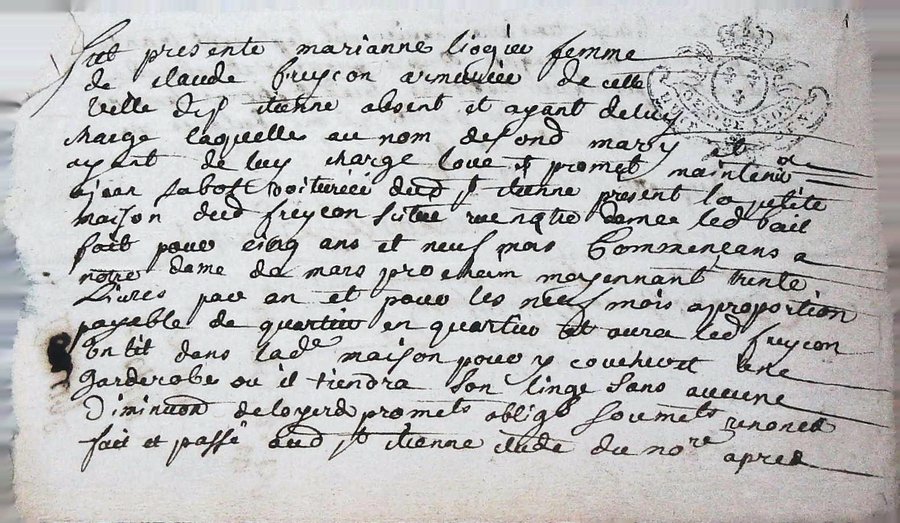 fut presente marianne liogier femme
de claude freycon armurier de cette
ville de St etienne absent et ayant de luy
charge laquelle au nom desond mary et
ayant de luy charge loue et promet maintenir
a jean sabot voiturier dud St etienne present la petite
maison dud freycon scituee rue notre dame led bail
fait pour cinq ans et neuf mois Commençans a
notre dame de mars prochain moyennant trente
Livres par an et pour les neuf mois a proportion
payable de quartier en quartier et aura led freycon
un lit dans lade maison pour y coucher et une
garderobe ou il tiendra son linge sans aucune
Diminuon de loyer promets oblige soumets renonce
fait et passé aud St etienne etude du nore apres